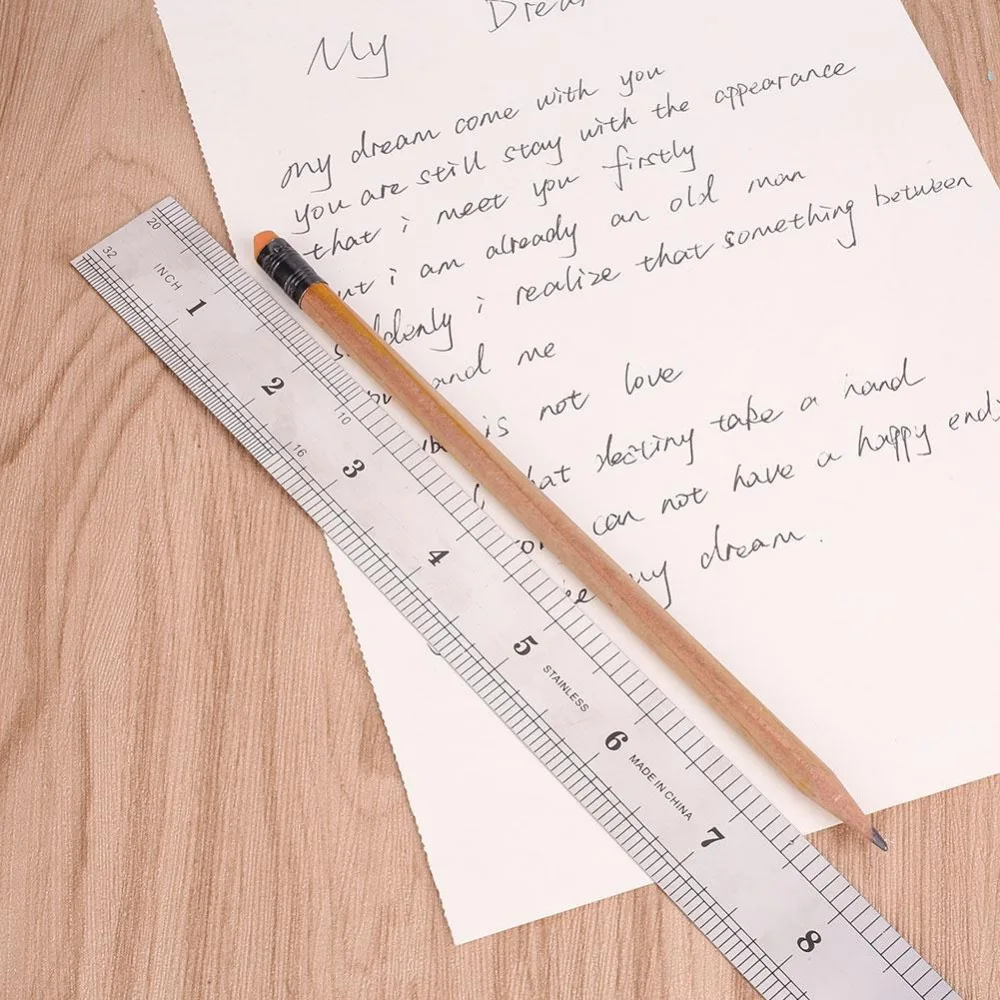 My Dream
my dream come with you
you are still stay with the appearance
that i meet you firstly
i am already an old man
i realize that something between
and me
is not love
destiny take a hand
can not have a happy end
my dream.
INCH
20
32
1
2
10
16
3
4
5
STAINLESS
6
MADE IN CHINA
7
8